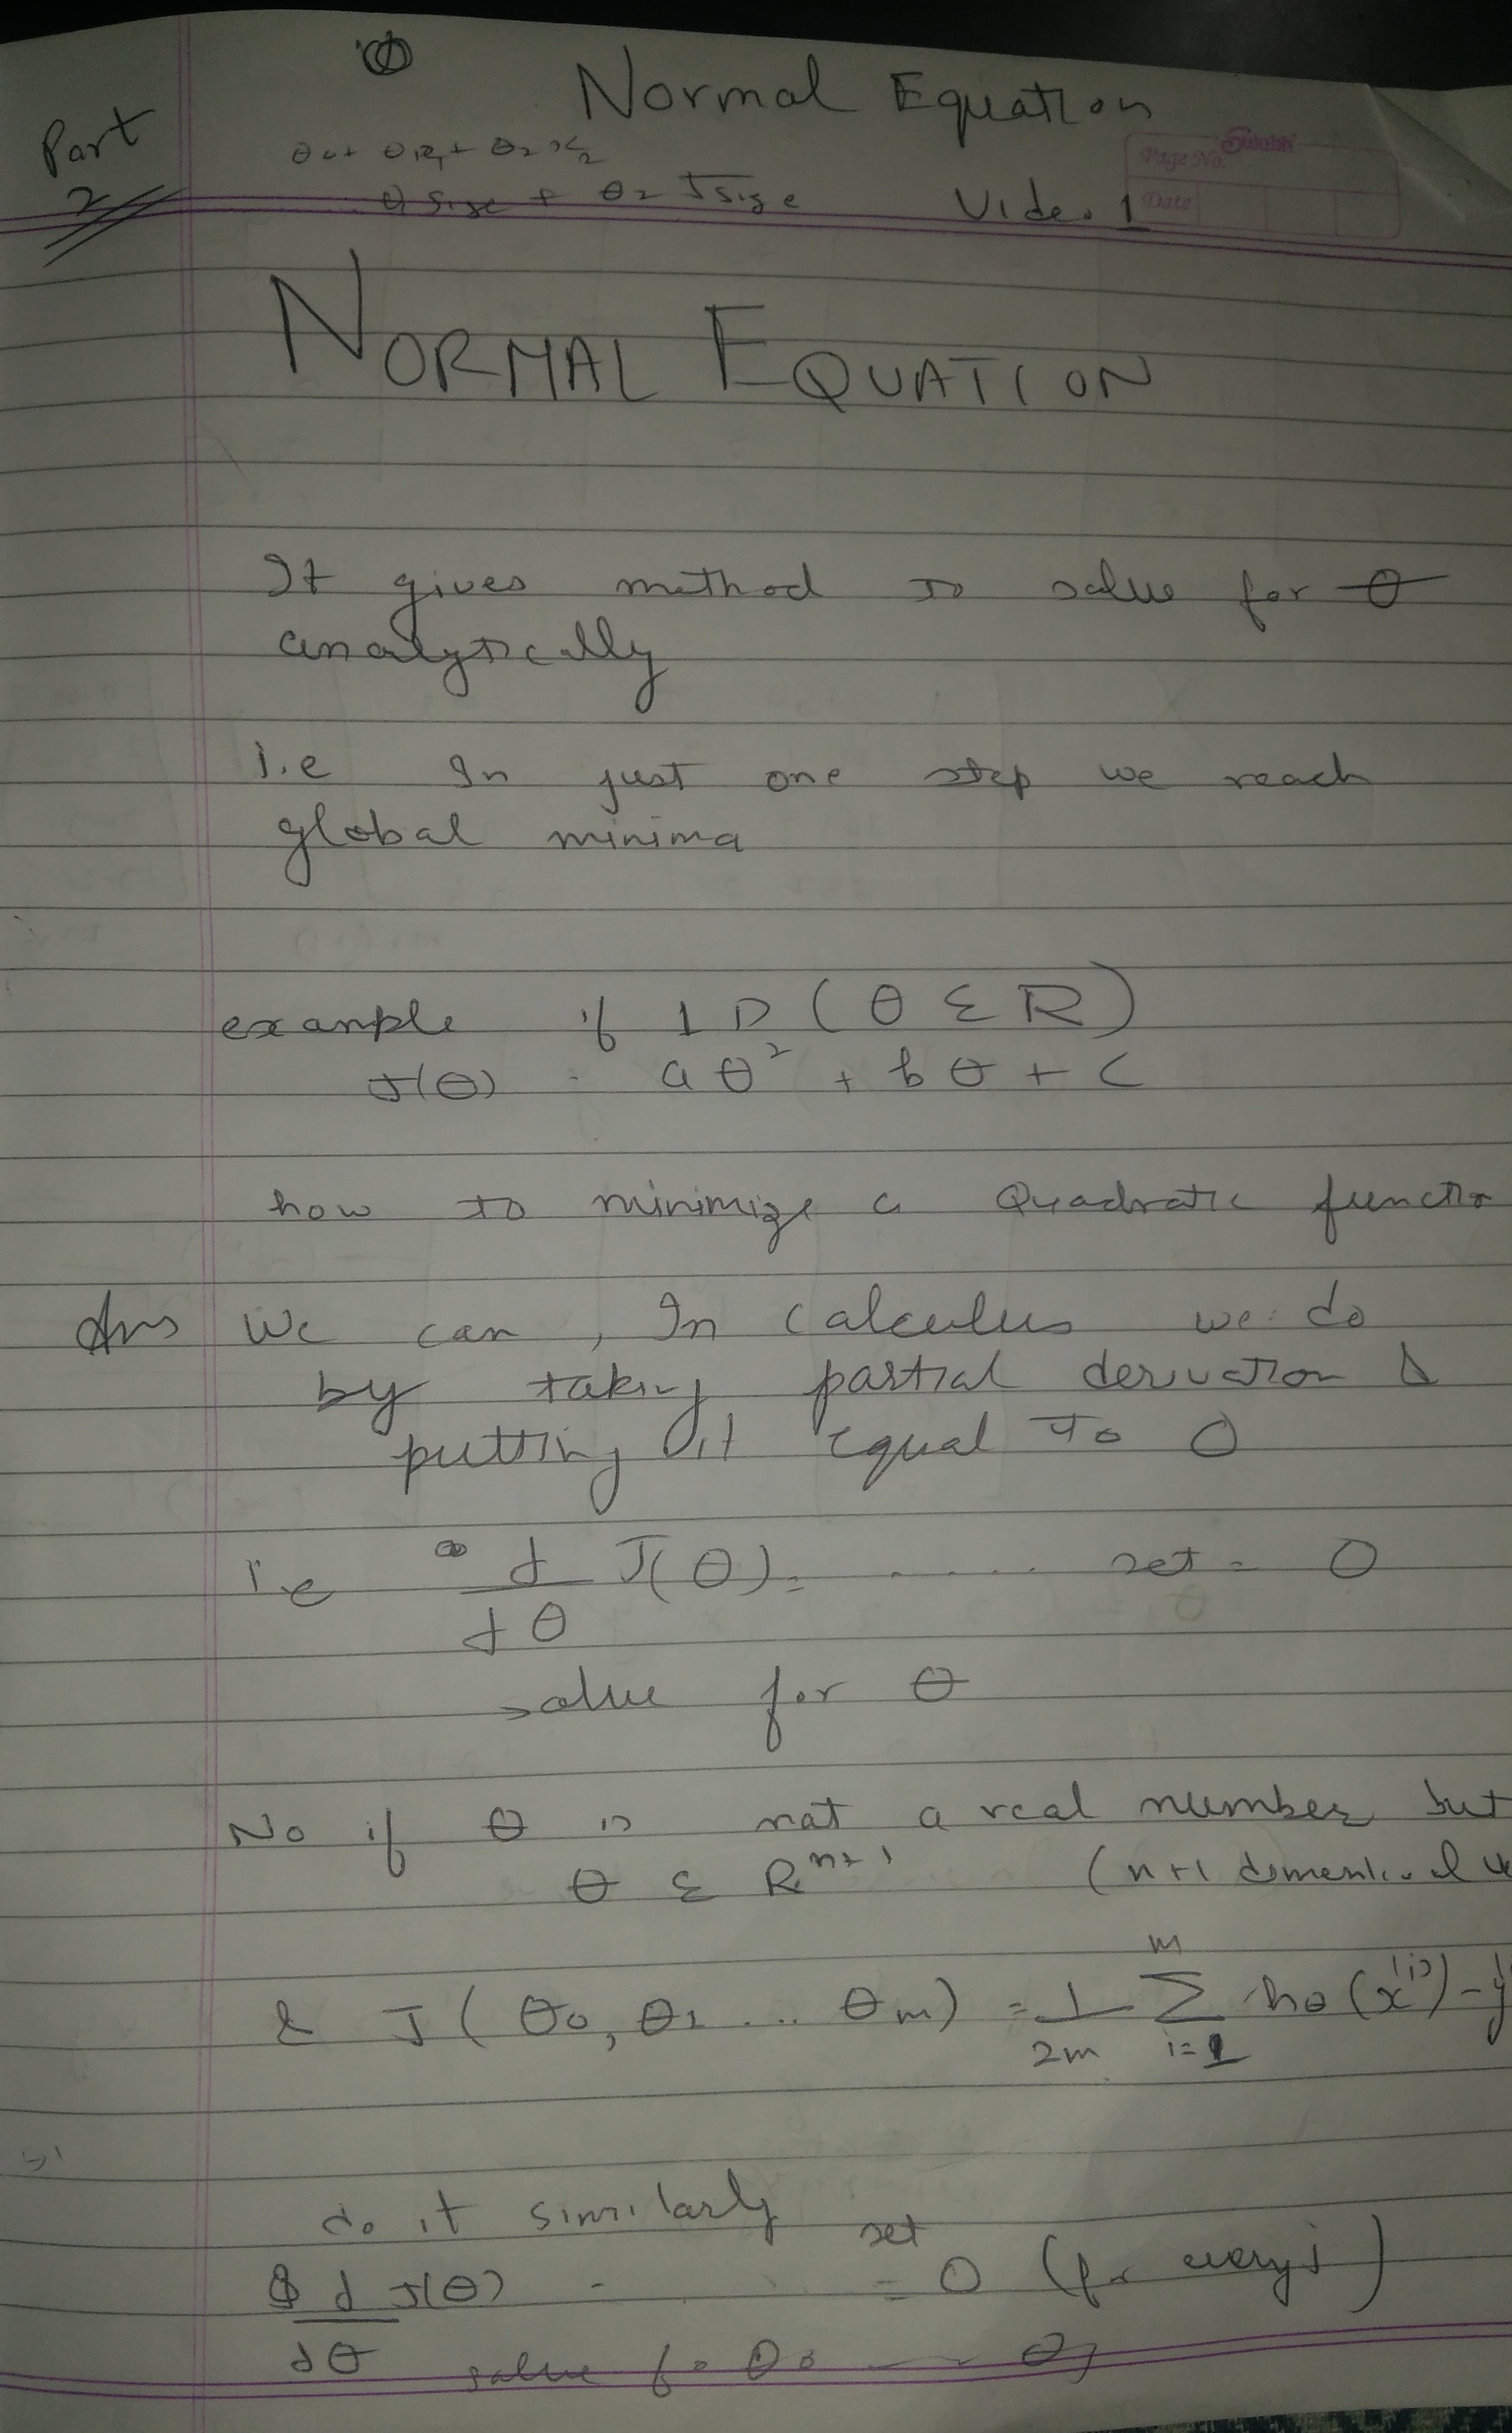 Normal Equation
Part
2
θ0 + θ1x1 + θ2x2
θ1 size + θ2 √size
Video 1
Sulabh
Page No.
Date
NORMAL EQUATION
It gives method to solve for θ
analytically
i.e In just one step we reach
global minima
example if 1D (θ ε R)
J(θ) = aθ² + bθ + c
how to minimize a Quadratic functio
Ans We can, In calculus we do
by taking partial derivation &
putting it equal to 0
i.e d J(θ) = ..... set = 0
dθ
solve for θ
No if θ is not a real number but
θ ε Rⁿ⁺¹ (n+1 dimentional ve
& J(θ0, θ1 ... θm) = 1/2m Σ hθ(x⁽ⁱ⁾) - y⁽
m
i=1
do it similarly
d J(θ) = set = 0 (for every j)
dθ
solve fo θ0 — θj